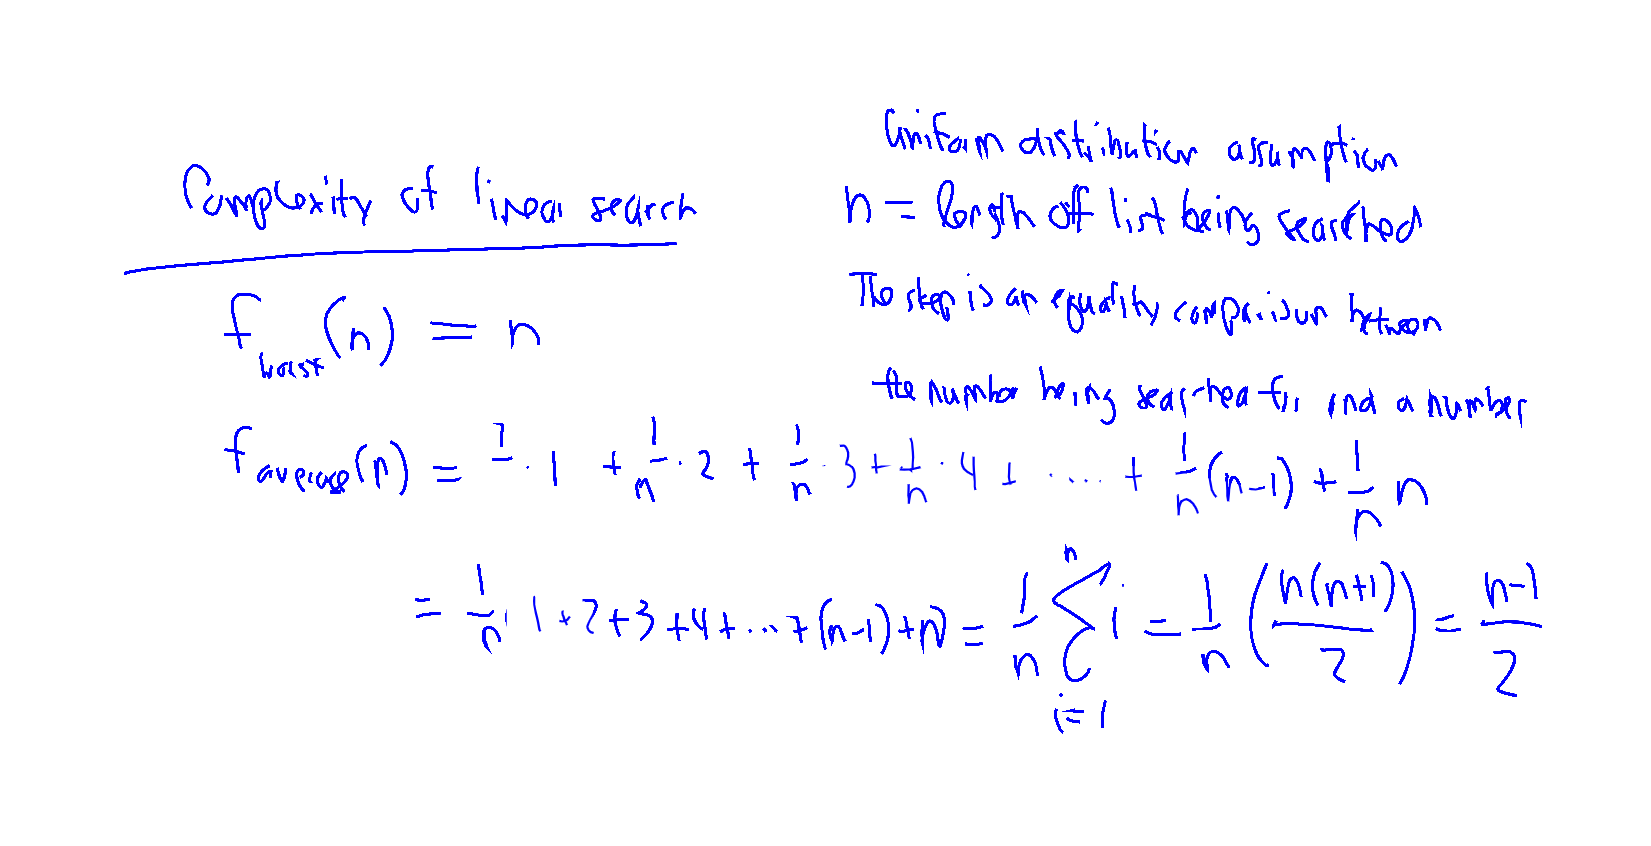 Complexity of linear search
f_worst(n) = n
Uniform distribution assumption
n = length off list being searched
The step is an equality comparison between
the number being searched for and a number
f_average(n) = 1/ · 1 + 1/n · 2 + 1/n · 3 + 1/n · 4 + ... + 1/n (n-1) + 1/n n
= 1/n · 1 + 2 + 3 + 4 + ... + (n-1) + n) = 1/n ∑_{i=1}^{n} i = 1/n (n(n+1)/2) = n-1/2